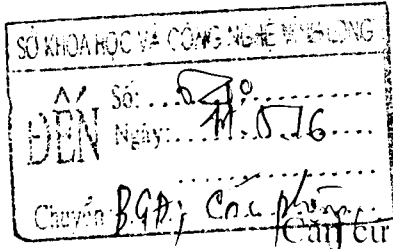 SỞ KHOA HỌC VÀ CÔNG NGHỆ VĨNH LONG
ĐẾN
Số: ...
Ngày: 11.5.16
Chuyển: B.GĐ; Các phòng
Căn cứ